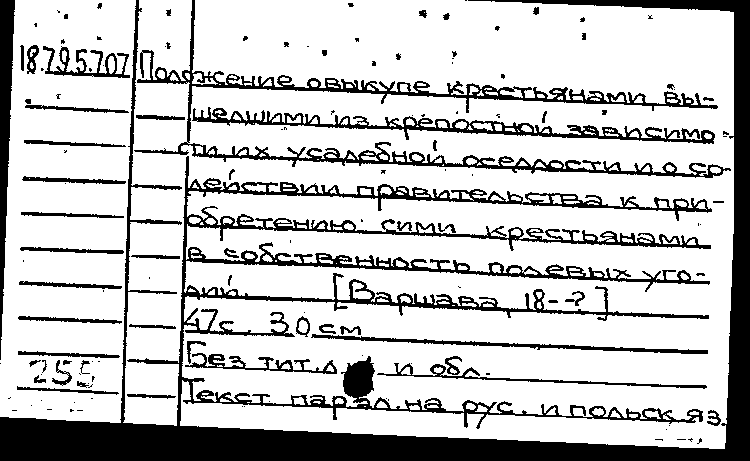 18.79.5.707 Положение о выкупе крестьянами, вы-
шедшими из крепостной зависимо-
сти, их усадебной оседлости и о со-
действии правительства к при-
обретению сими крестьянами
в собственность полевых уго-
дий. [Варшава, 18--?]
47с. 30 см
Без тит. л. и обл.
255
Текст парал. на рус. и польск яз.